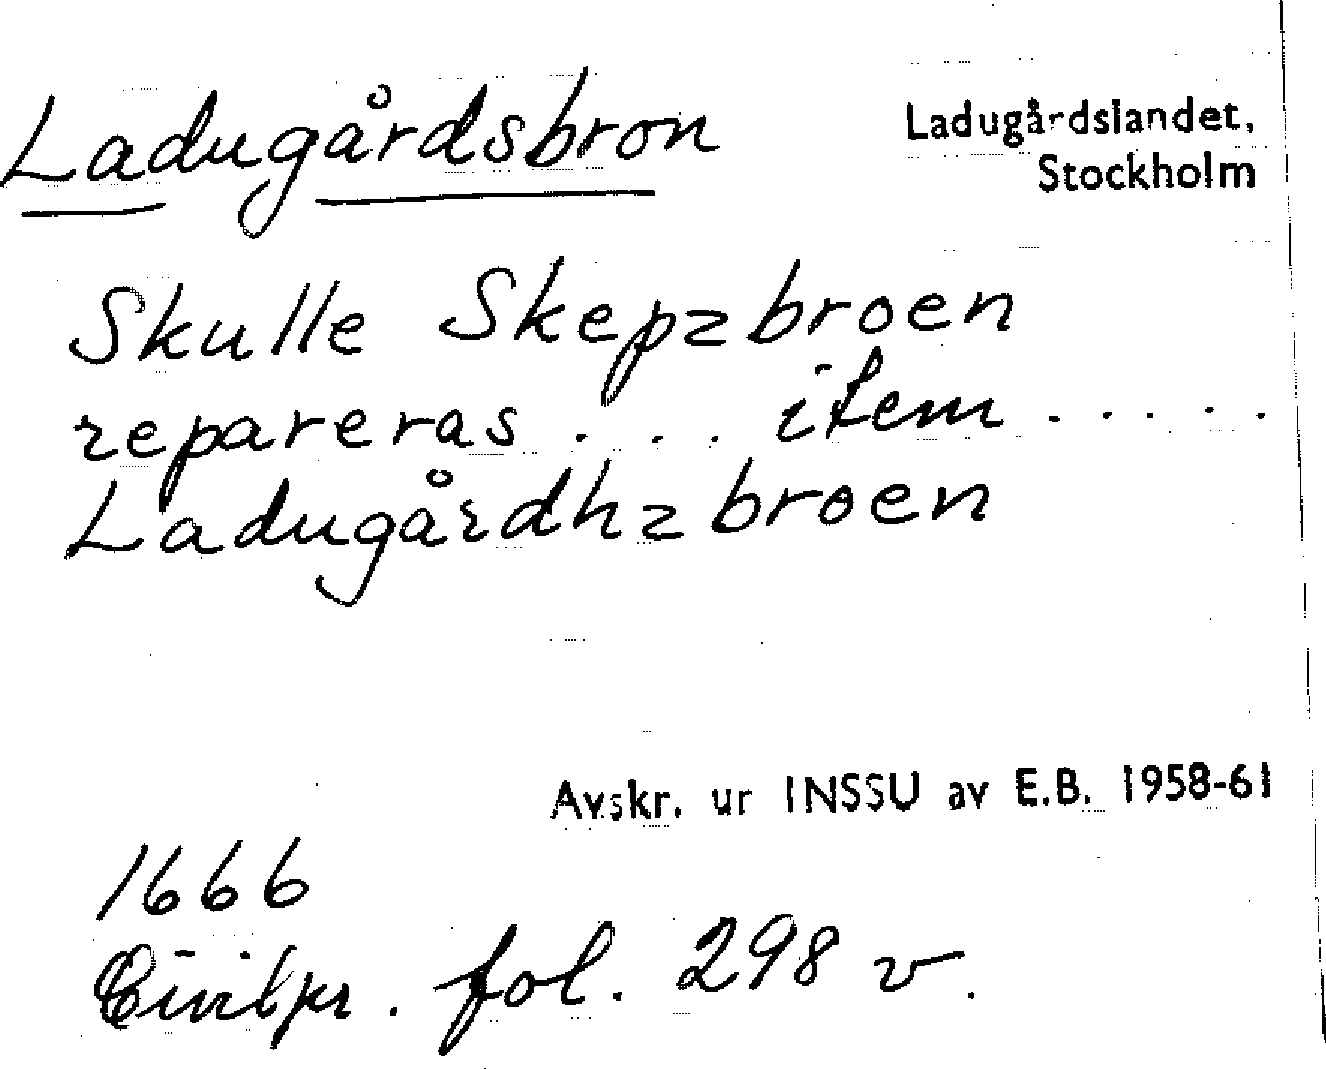 Ladugårdsbron
Ladugårdslandet,
Stockholm
Skulle Skepzbroen
repareras . . . item . . . . .
Ladugårdhzbroen
Avskr. ur INSSU av E.B. 1958-61
1666
Civilpr. fol. 298 v.